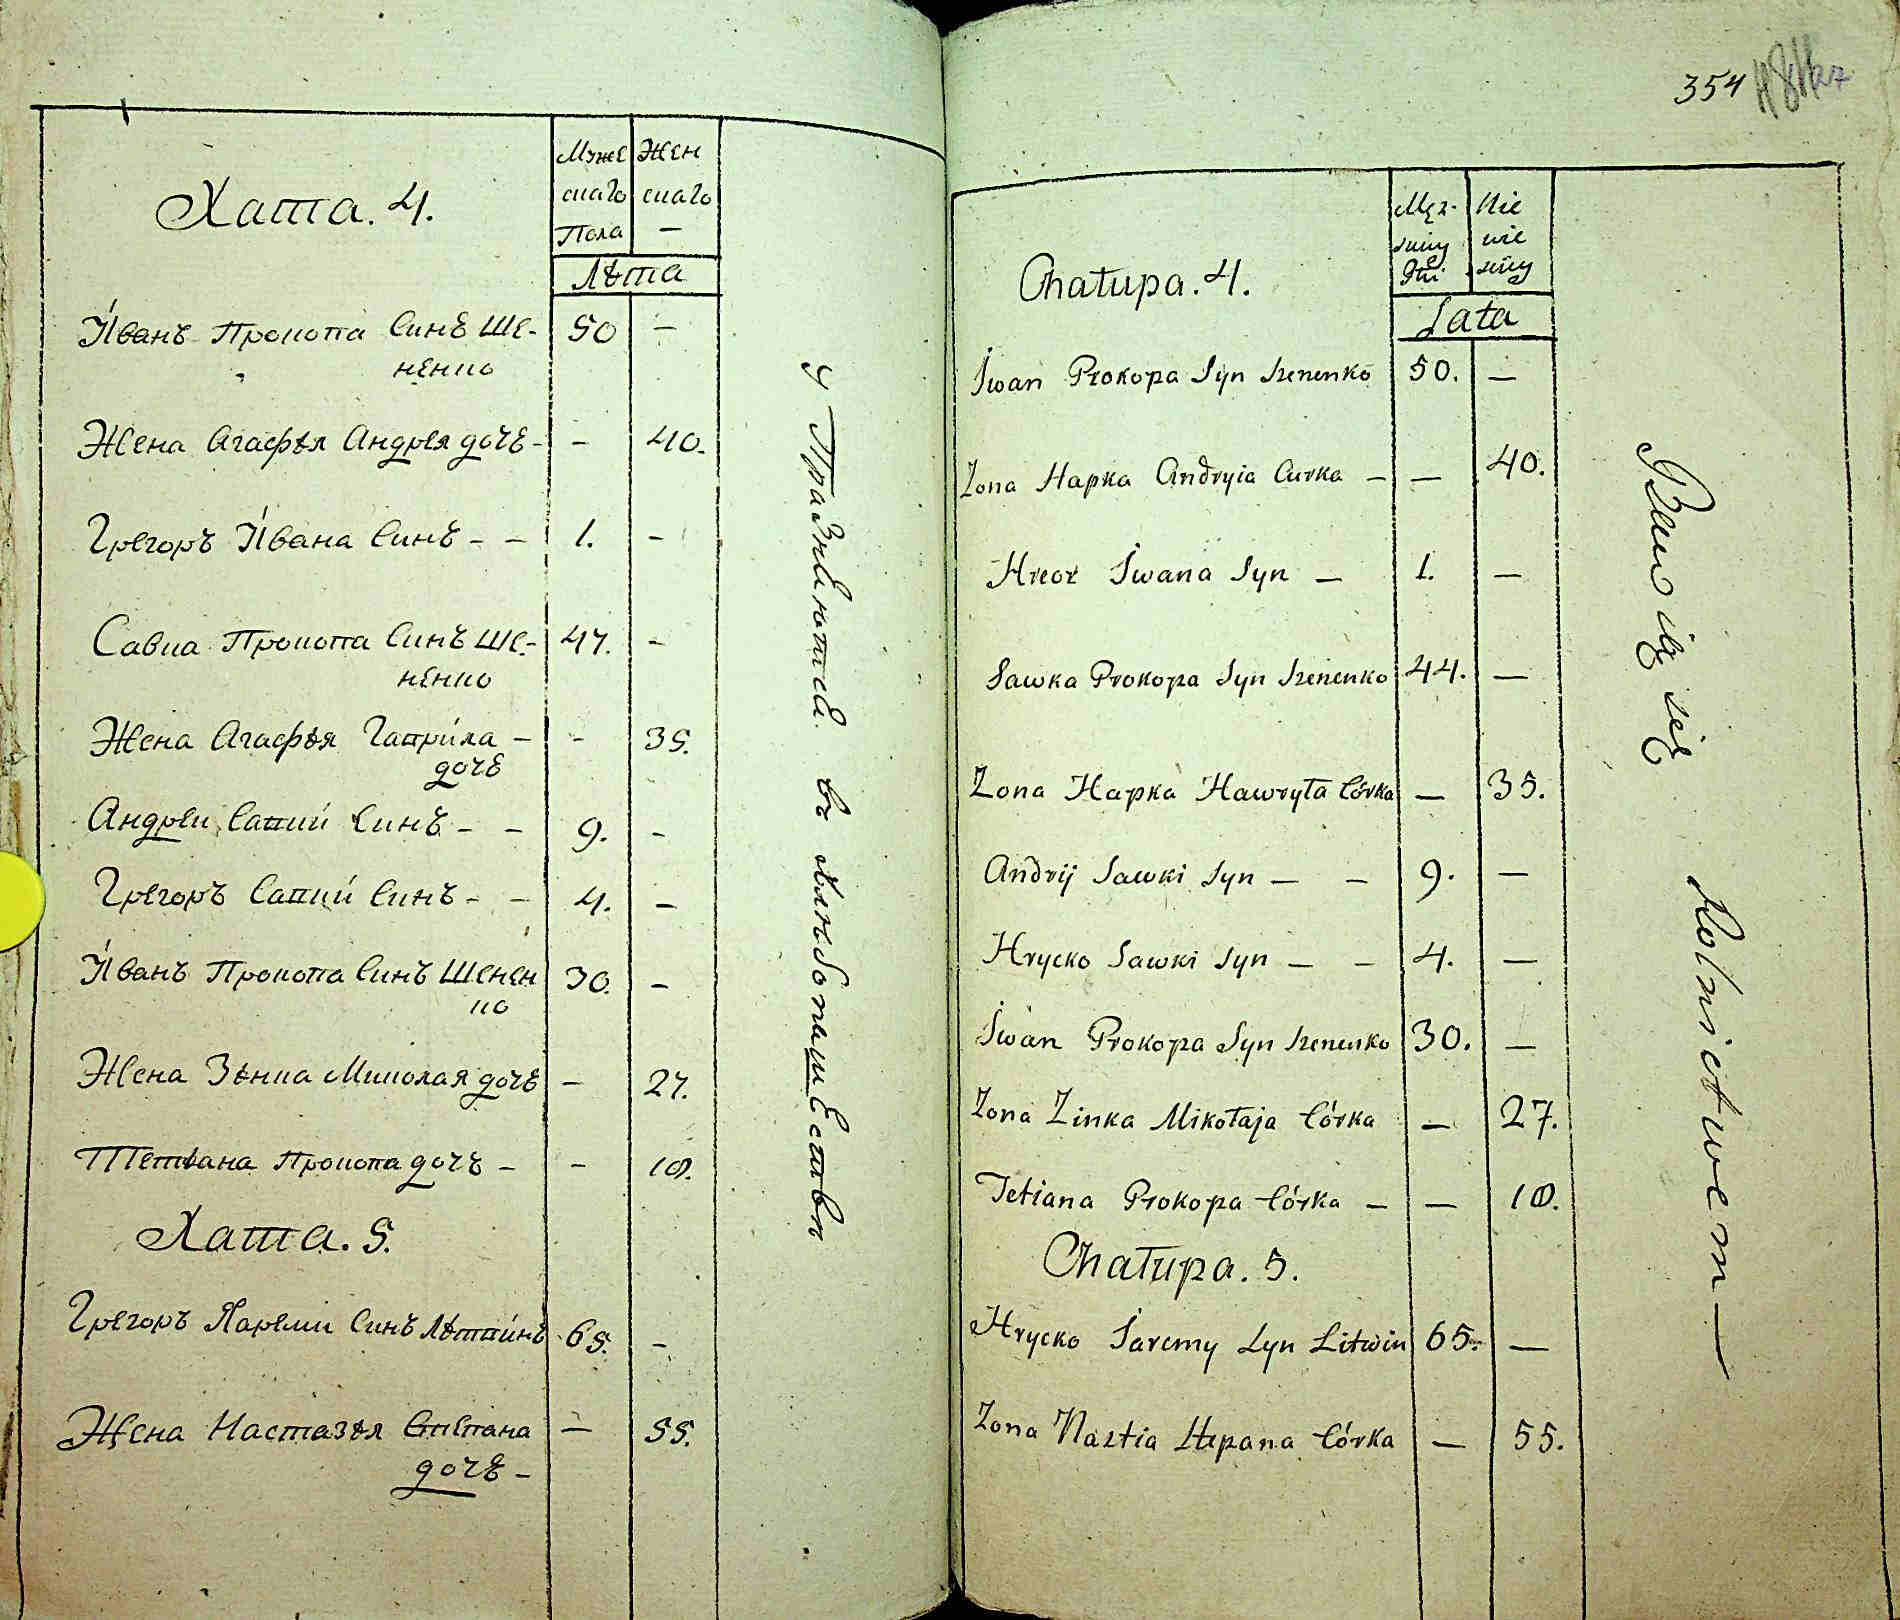 Хата. 4.
Муже Жен
скаго скаго
Пола —
Лѣта
Иванъ Прокопа Синъ Ше- 50 —
ненко
Жена Агафѣя Андрея дочъ - - 40.
Грегоръ Ивана Синъ - - 1. -
Савка Прокопа Синъ Ше- 47. -
ненко
Жена Агафѣя Гаврила - - 35.
дочъ
Андреи Савки Синъ - - 9. -
Грегоръ Савки Синъ - - 4. -
Иванъ Прокопа Синъ Шенен 30. -
ко
Жена Зѣнка Миколая дочъ - 27.
Тетѣана Прокопа дочъ - - 18.
Хата. 5.
Грегоръ Яреми Синъ Лѣтвинъ 65. -
Жена Настазѣя Степана — 55.
дочъ -
354
Chałupa. 4.
Męz- Nie
kiey wie
Płci sciey
Lata
Iwan Prokopa Syn Szenenko 50. —
Zona Hapka Andryia Curka - — 40.
Hreor Iwana Syn — 1. —
Sawka Prokopa Syn Szenenko 44. —
Zona Hapka Hawryła Córka — 35.
Andrij Sawki Syn — - 9. —
Hrycko Sawki Syn — - 4. —
Iwan Prokopa Syn Szenenko 30. —
Zona Zinka Mikołaja Córka — 27.
Tetiana Prokopa Córka — — 18.
Chałupa. 5.
Hrycko Jaremy Syn Litwin 65. —
Zona Nastia Stepana Córka — 55.
Rolnictwem —